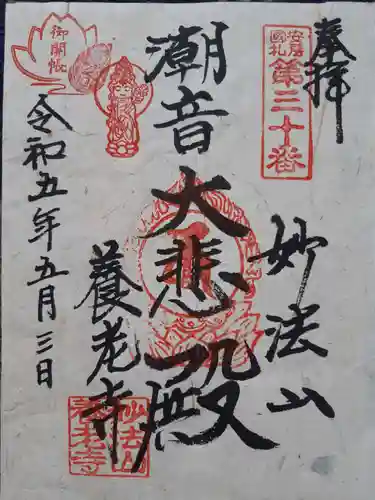 奉拝
安房国札
第三十番
妙法山
潮音
大悲殿
養老寺
御開帳
令和五年五月三日
妙法山
養老寺